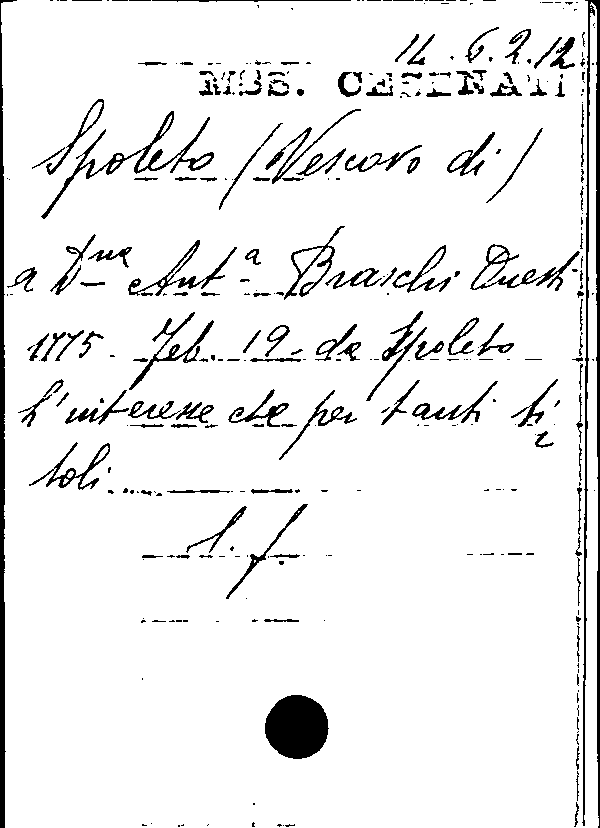 14.6.2.12
MSS. CESENATI
Spoleto (Vescovo di)
a Dna Anta Braschi Onesti
1775. Feb. 19. da Spoleto
L'interesse che per tanti ti
toli
l. f.